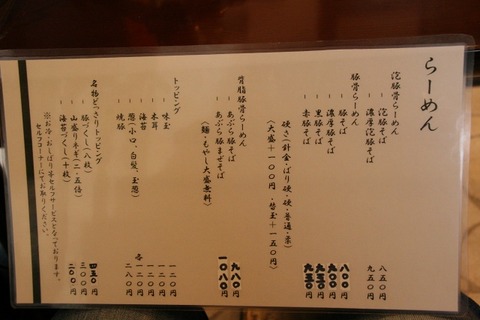 らーめん
泡豚骨らーめん
- 泡豚そば 八五〇円
- 濃厚泡豚そば 九五〇円
豚骨らーめん
- 豚そば 八〇〇円
- 濃厚豚そば 九〇〇円
- 黒豚そば 九五〇円
- 赤豚そば 九五〇円
硬さ(針金・ばり硬・硬・普通・柔)
(大盛+一〇〇円、替玉+一五〇円)
背脂豚骨らーめん
- あぶら豚そば 九八〇円
- あぶら豚まぜそば 一〇八〇円
(麺・もやし大盛無料)
トッピング
- 味玉 一二〇円
- 木耳 一二〇円
- 海苔 一二〇円
- 葱(小口、白髪、玉葱) 各一二〇円
- 焼豚 二八〇円
名物どっさりトッピング
- 豚づくし(八枚) 四五〇円
- 山盛りネギ(二・五倍) 三〇〇円
- 海苔づくし(十枚) 二〇〇円
※お冷・おしぼり等セルフサービスとなっております。
セルフコーナーにてお取りください。